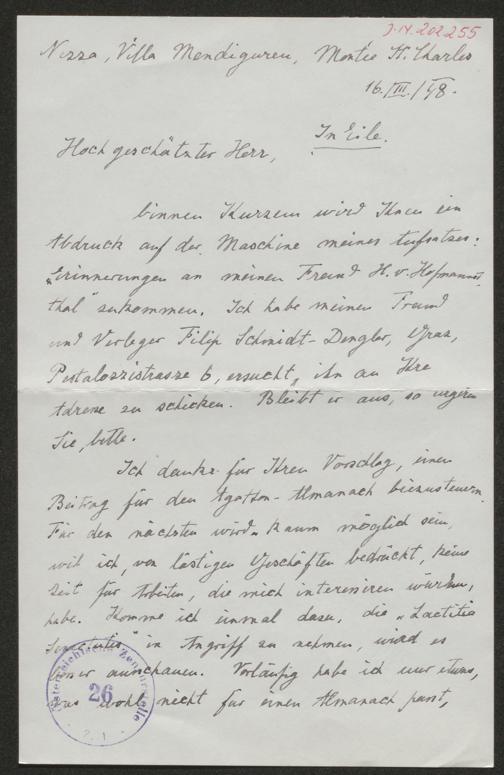 J.N. 202255
Nizza, Villa Mendiguren, Montée St. Charles
16./III./48.
In Eile.
Hochgeschätzter Herr,
binnen Kurzem wird Ihnen ein
Abdruck auf der Maschine meines Aufsatzes:
„Erinnerungen an meinen Freund H. v. Hofmanns-
thal" zukommen. Ich habe meinen Freund
und Verleger Filip Schmidt-Dengler, Graz,
Pestalozzistrasse 6, ersucht, ihn an Ihre
Adresse zu schicken. Bleibt er aus, so urgieren
Sie, bitte.
Ich danke für Ihren Vorschlag, einen
Beitrag für den Agathon-Almanach beizusteuern.
Für den nächsten wird's kaum möglich sein,
weil ich, von lästigen Geschäften bedrückt, keine
Zeit für Arbeiten, die mich interessieren würden,
habe. Komme ich einmal dazu, die „Laetitia
in Angriff zu nehmen, wird es
besser ausschauen. Vorläufig habe ich nur etwas,
was wohl nicht für einen Almanach passt,
Österreichische Zensurstelle
26